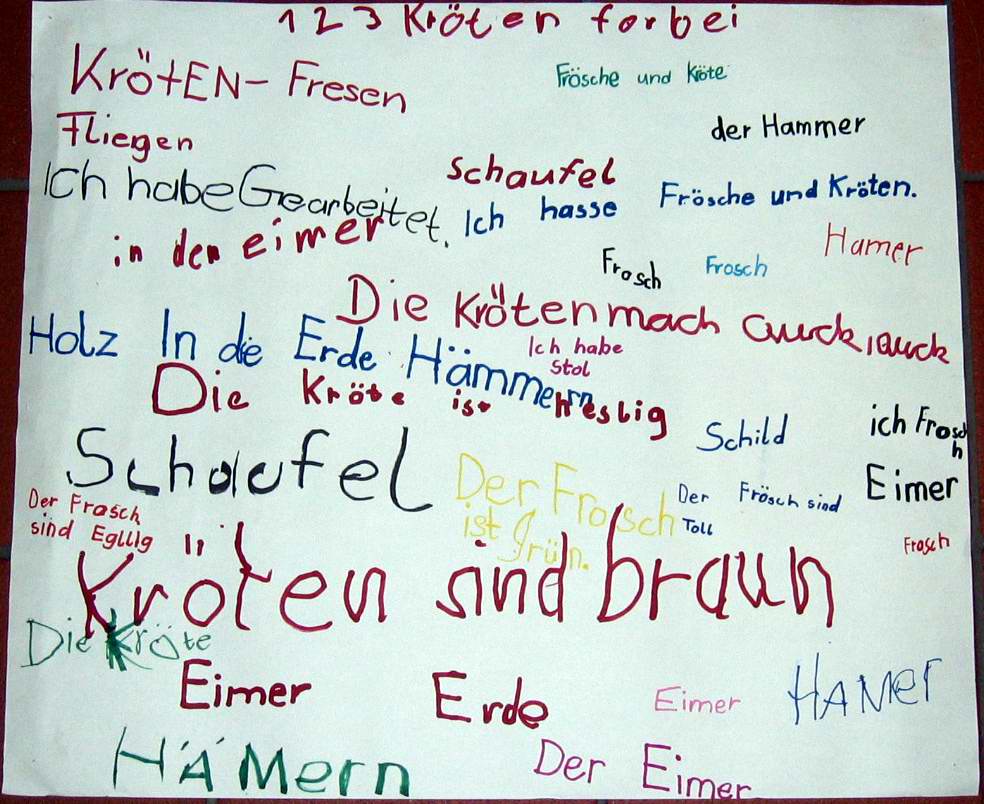 1 2 3 Kröten forbei
KrötEN- Fresen
Fliegen
Frösche und Kröte
der Hammer
Schaufel
Ich habe Gearbeitet.
Ich hasse Frösche und Kröten.
in den eimer
Hamer
Frosch
Frosch
Die Kröten mach quack, quack
Holz In die Erde Hämmern
Ich habe
Stol
Die Kröte ist Heslig
Schild
ich Frosch
h
Schaufel
Eimer
Der Frosch
ist grün.
Der Frösch sind
Toll
Der Frasch
sind Egllig
Frosch
Kröten sind braun
Die Kröte
Eimer
Erde
Eimer
HAMer
HÄMern
Der Eimer